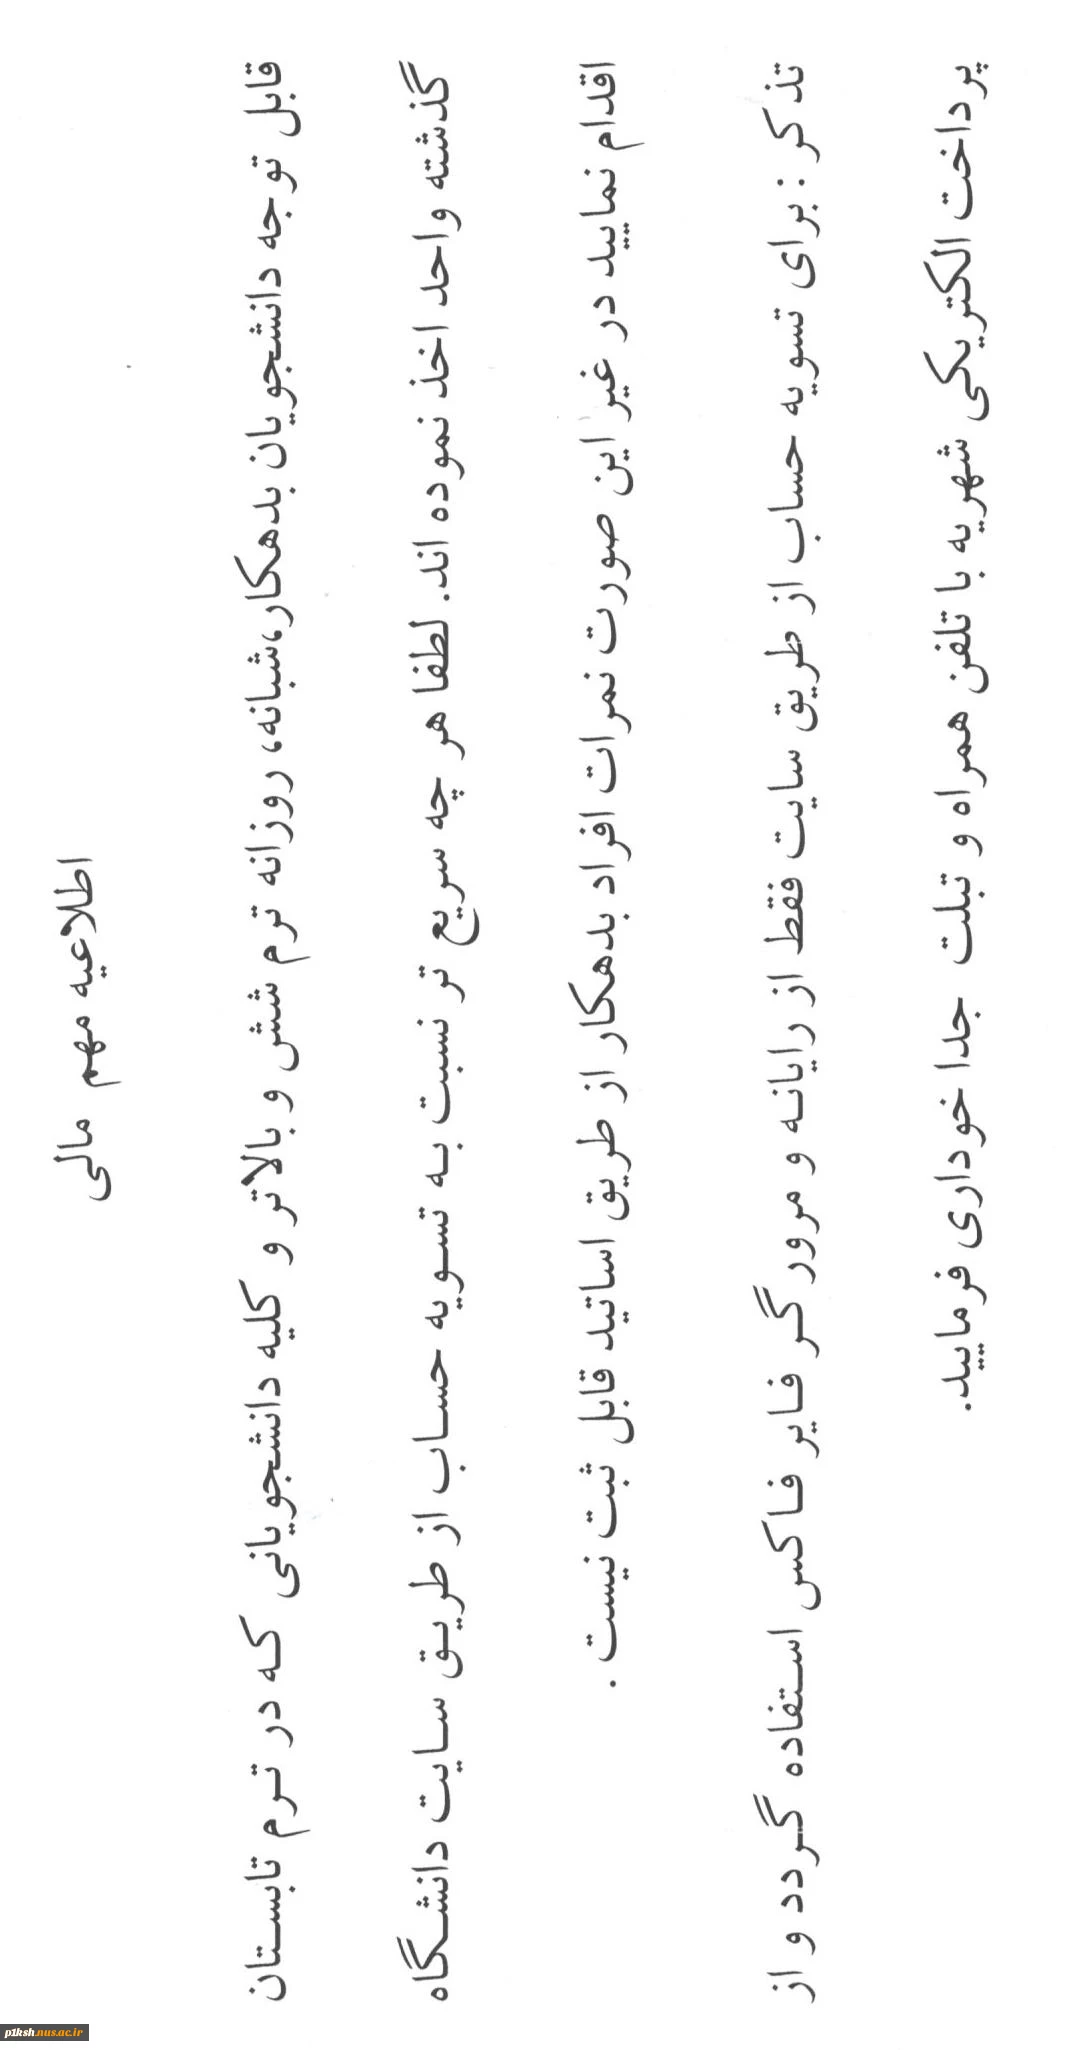 اطلاعیه مهم مالی
قابل توجه دانشجویان بدهکار،شبانه، روزانه ترم شش و بالاتر و کلیه دانشجویانی که در ترم تابستان
گذشته واحد اخذ نموده اند. لطفا هر چه سریع تر نسبت به تسویه حساب از طریق سایت دانشگاه
اقدام نمایید در غیر این صورت نمرات افراد بدهکار از طریق اساتید قابل ثبت نیست .
تذکر : برای تسویه حساب از طریق سایت فقط از رایانه و مرور گر فایر فاکس استفاده گردد و از
پرداخت الکتریکی شهریه با تلفن همراه و تبلت جدا خوداری فرمایید.
p1ksh.nus.ac.ir